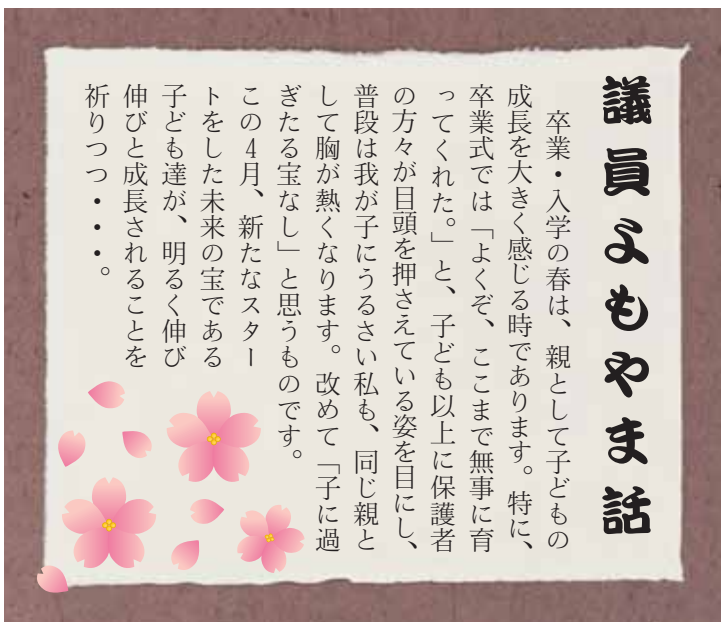 議員よもやま話
　卒業・入学の春は、親として子どもの
成長を大きく感じる時であります。特に、
卒業式では「よくぞ、ここまで無事に育
ってくれた。」と、子ども以上に保護者
の方々が目頭を押さえている姿を目にし、
普段は我が子にうるさい私も、同じ親と
して胸が熱くなります。改めて「子に過
ぎたる宝なし」と思うものです。
この4月、新たなスター
トをした未来の宝である
子ども達が、明るく伸び
伸びと成長されることを
祈りつつ・・・。